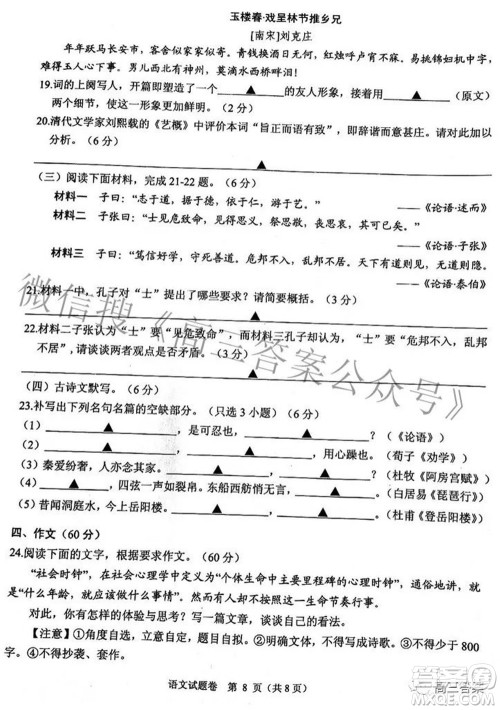 玉楼春·戏呈林节推乡兄
[南宋]刘克庄
年年跃马长安市，客舍似家家似寄。青钱换酒日无何，红烛呼卢宵不寐。 易挑锦妇机中字，
难得玉人心下事。男儿西北有神州，莫滴水西桥畔泪！
19.词的上阕写人，开篇即塑造了一个 ▲ 的友人形象，接着用 ▲ （原文）
两个细节，使这一形象更加鲜明。（2 分）
20.清代文学家刘熙载的《艺概》中评价本词“旨正而语有致”，即辞谐而意甚庄。请对此加以
分析。（6 分）
▲
（三）阅读下面材料，完成21-22题。（6 分）
材料一 子曰：“志于道，据于德，依于仁，游于艺。” ——《论语·述而》
材料二 子张曰：“士见危致命，见得思义，祭思敬，丧思哀，其可已矣。”
——《论语·子张》
材料三 子曰：“笃信好学，守死善道。危邦不入，乱邦不居。天下有道则见，无道则隐。”
——《论语·泰伯》
21.材料一中，孔子对“士”提出了哪些要求？请简要概括。（3 分）
▲
22.材料二子张认为“士”要“见危致命”，而材料三孔子却认为“士”要“危邦不入，乱邦
不居”，请谈谈两者观点是否矛盾。（3 分）
▲
（四）古诗文默写。（6 分）
23.补写出下列名句名篇的空缺部分。（只选 3 小题）（6 分）
（1） ▲ ，是可忍也， ▲ ？（《论语》）
（2） ▲ ， ▲ ，用心躁也。（荀子《劝学》）
（3）秦爱纷奢，人亦念其家。 ▲ ， ▲ ？（杜牧《阿房宫赋》）
（4） ▲ ，四弦一声如裂帛。东船西舫悄无言， ▲ 。（白居易《琵琶行》）
（5）昔闻洞庭水，今上岳阳楼。 ▲ ， ▲ 。（杜甫《登岳阳楼》）
四、作文（60 分）
24.阅读下面的文字，根据要求作文。（60 分）
“社会时钟”，在社会心理学中指“个体生命中主要里程碑的心理时钟”，通俗讲，就
是“什么年龄，就应该做什么事情”的以社会为主导的生命节奏行事。
对此，你有怎样的体验与思考？写一篇文章，谈谈你的看法。
【注意】①角度自选，立意自定，题目自拟。②明确文体，不得写成诗歌。③不得少于 800
字。④不得抄袭、套作。
语文试题卷 第 8 页（共 8 页）
微信搜《高三答案公众号》
高三答案